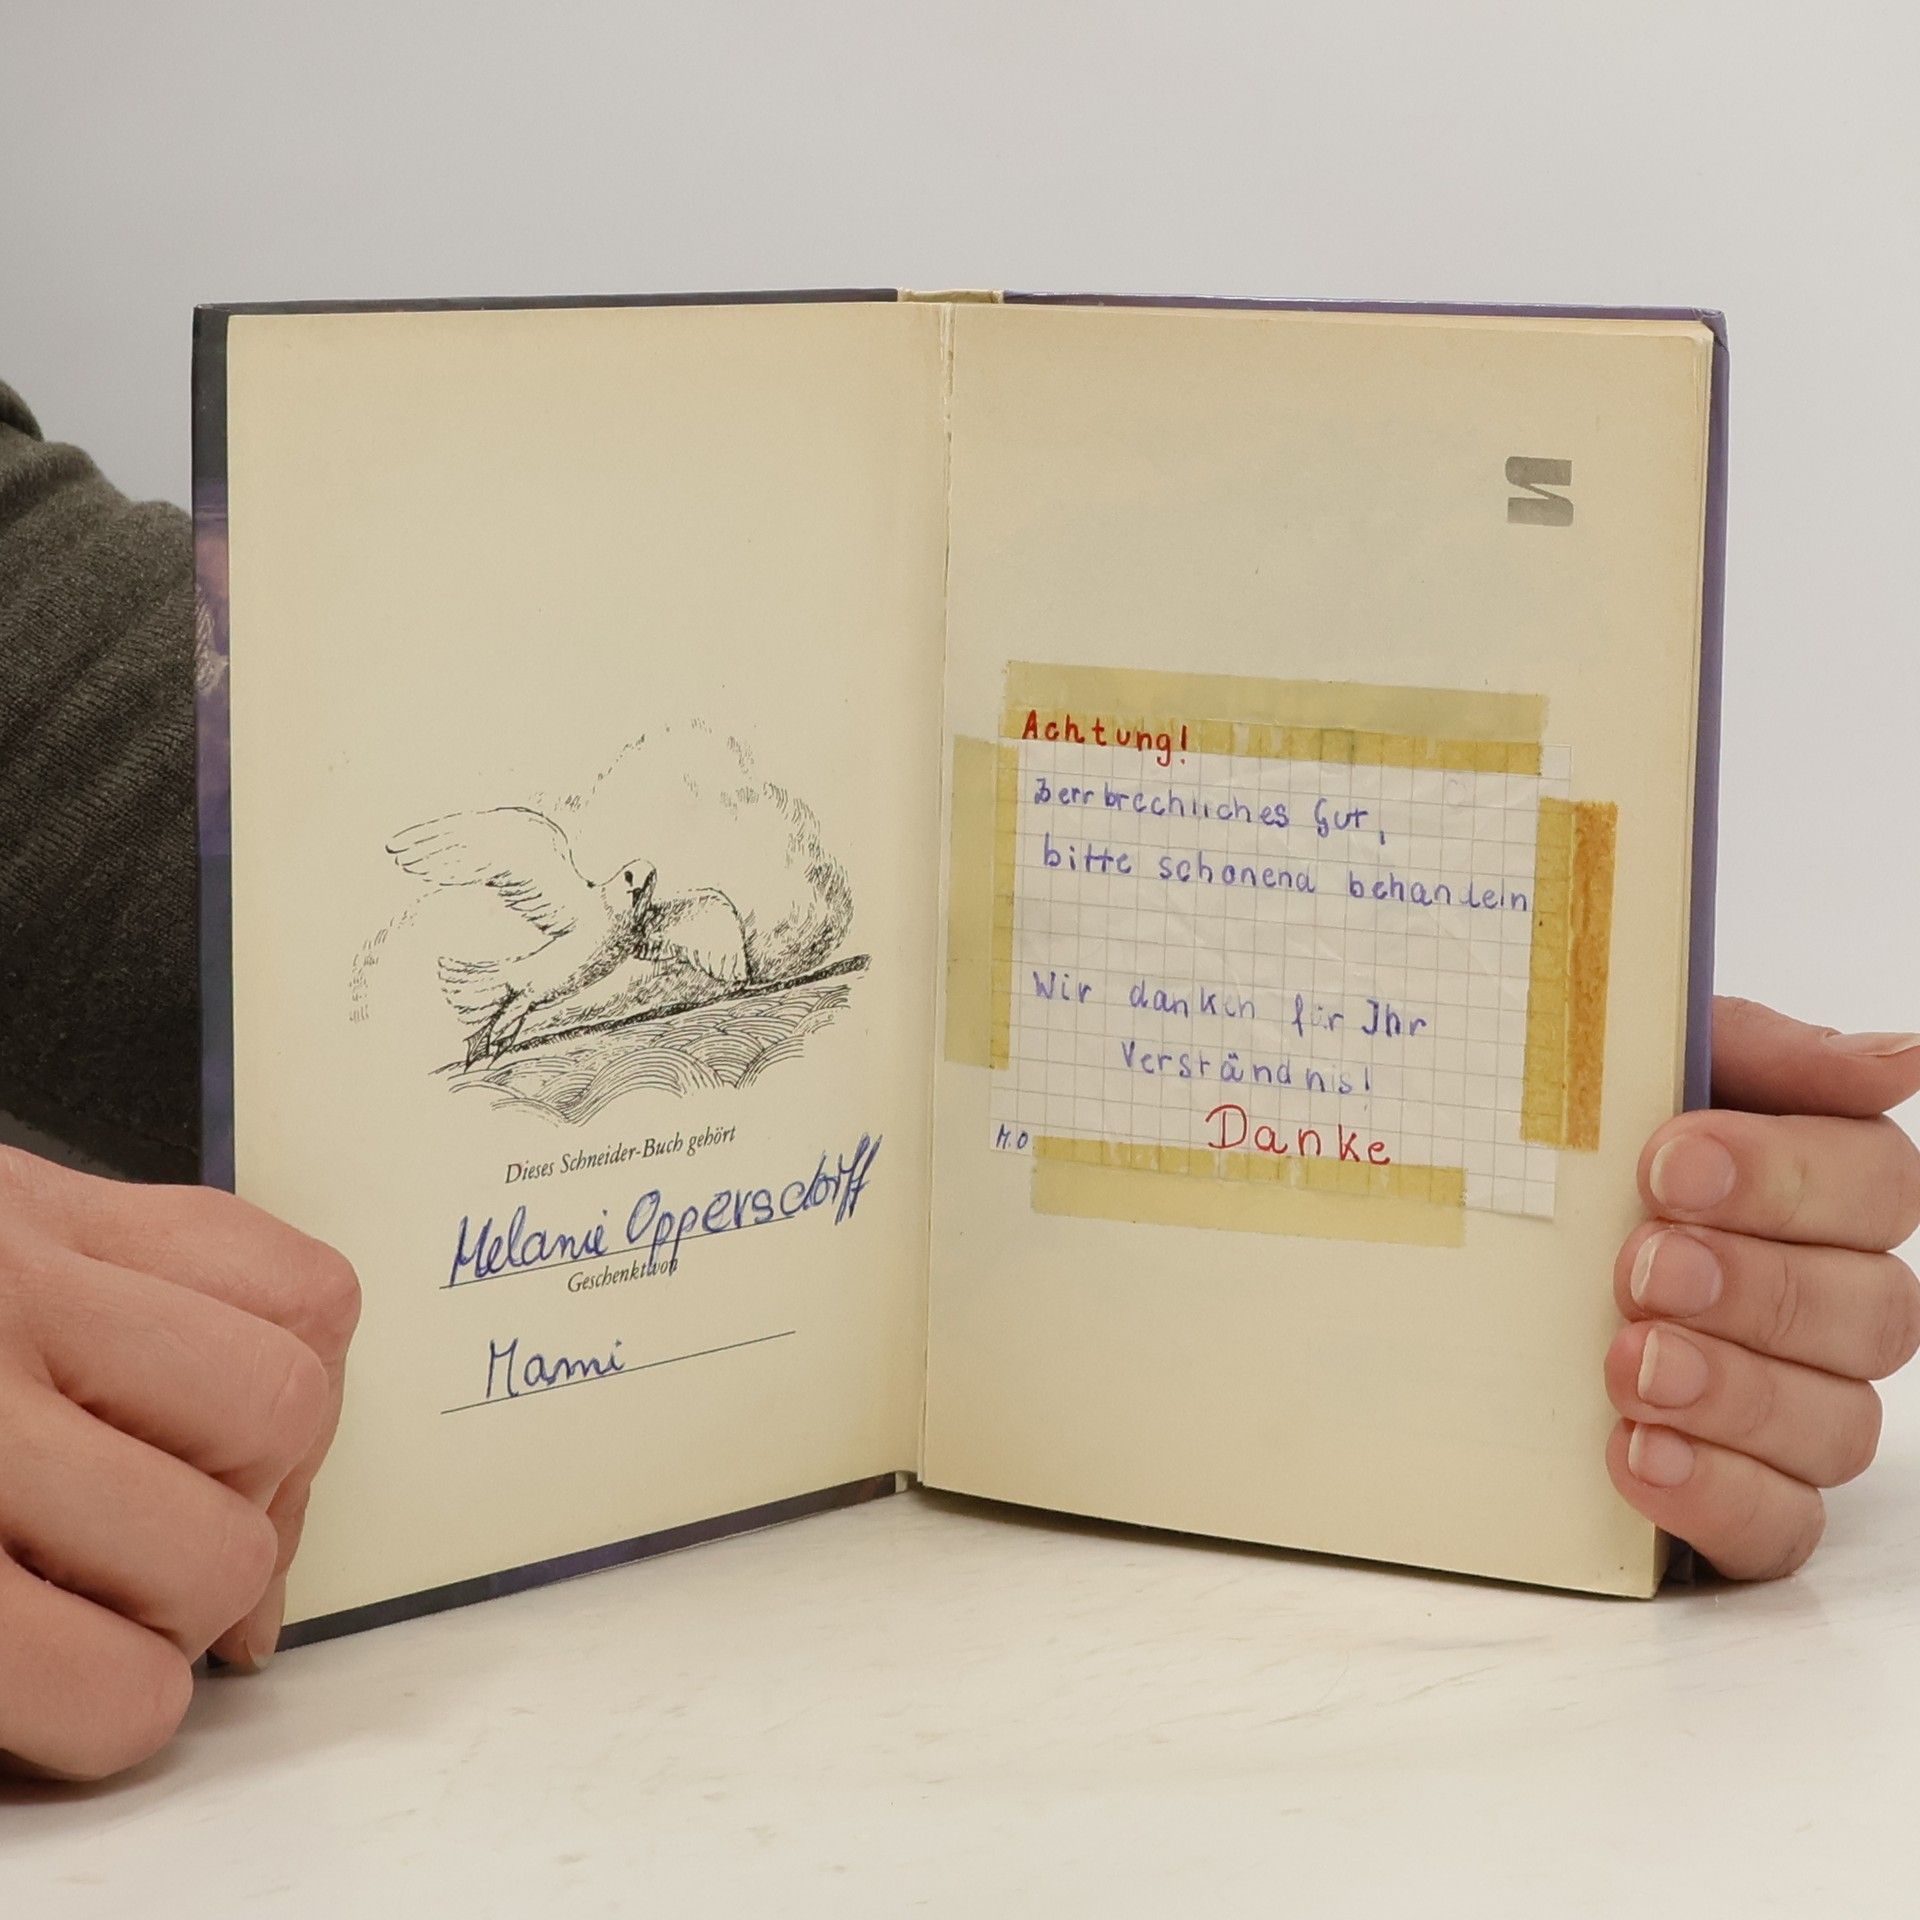 Dieses Schneider-Buch gehört
Melanie Oppersdorff
Geschenkt von
Mami
Achtung!
Zerrbrechliches Gut,
bitte schonend behandeln
Wir danken für Ihr
Verständnis!
Danke
M.O